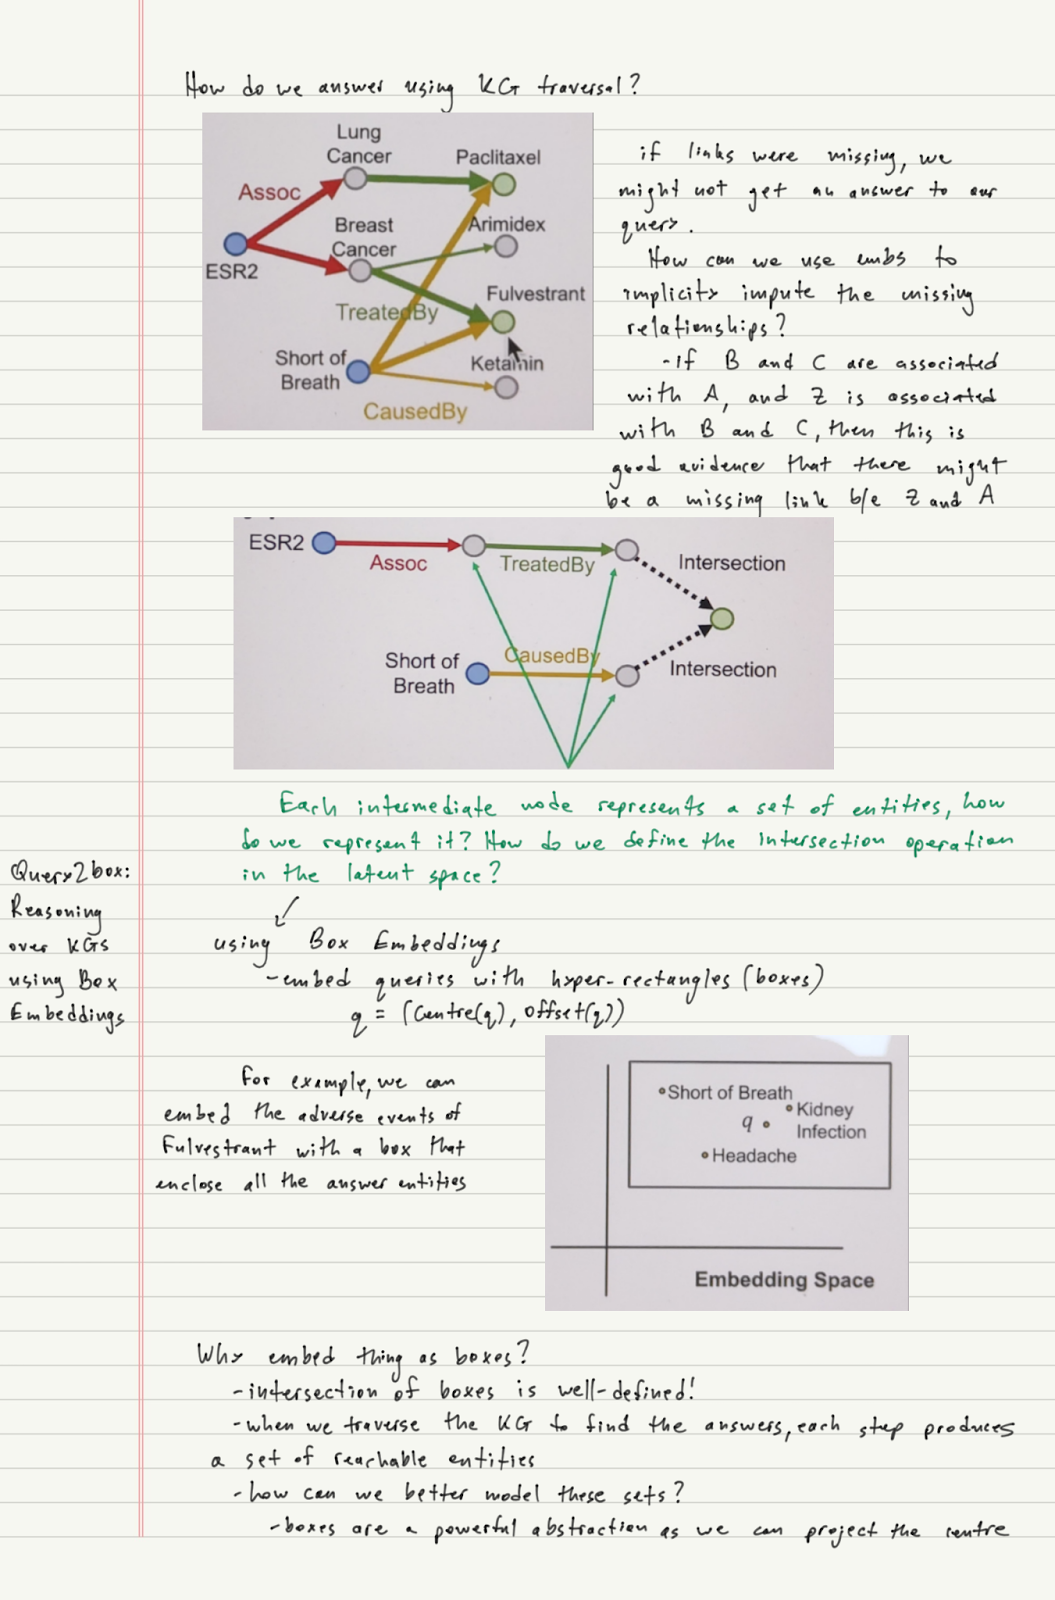 How do we answer using KG traversal?
Lung
Cancer
Paclitaxel
Assoc
Breast
Cancer
Arimidex
ESR2
Fulvestrant
TreatedBy
Short of
Breath
Ketamin
CausedBy
if links were missing, we
might not get an answer to our
query.
How can we use embs to
implicity impute the missing
relationships?
-If B and C are associated
with A, and Z is associated
with B and C, then this is
good evidence that there might
be a missing link b/e Z and A
ESR2
Assoc
TreatedBy
Intersection
CausedBy
Short of
Breath
Intersection
Each intermediate node represents a set of entities, how
do we represent it? How do we define the intersection operation
in the latent space?
Query2box:
Reasoning
over KGs
using Box
Embeddings
using Box Embeddings
-embed queries with hyper-rectangles (boxes)
q = (Centre(q), Offset(q))
For example, we can
embed the adverse events of
Fulvestrant with a box that
enclose all the answer entities
Short of Breath
Kidney
Infection
q
Headache
Embedding Space
Why embed thing as boxes?
-intersection of boxes is well-defined!
-when we traverse the KG to find the answers, each step produces
a set of reachable entities
-how can we better model these sets?
-boxes are a powerful abstraction as we can project the centre